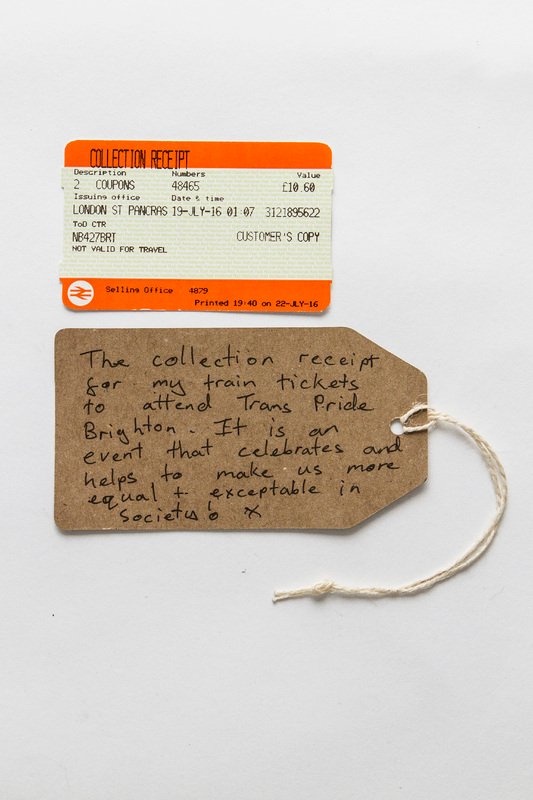 COLLECTION RECEIPT
Description Numbers Value
2 COUPONS 48465 £10.60
Issuing office Date & time
LONDON ST PANCRAS 19-JLY-16 01:07 3121895622
ToD CTR
NB427BRT CUSTOMER'S COPY
NOT VALID FOR TRAVEL
Selling Office 4879
Printed 19:40 on 22-JLY-16
The collection receipt
for my train tickets
to attend Trans Pride
Brighton. It is an
event that celebrates and
helps to make us more
equal + exceptable in
society X